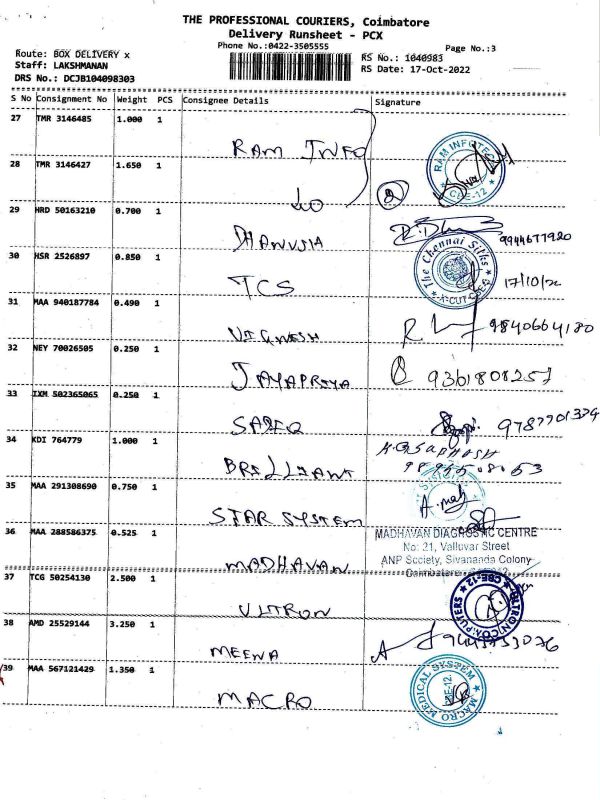 THE PROFESSIONAL COURIERS, Coimbatore
Delivery Runsheet - PCX
Phone No.:0422-3505555
Page No.:3
Route: BOX DELIVERY x
RS No.: 1040983
Staff: LAKSHMANAN
RS Date: 17-Oct-2022
DRS No.: DCJB104098303
S No Consignment No Weight PCS Consignee Details Signature
27 TMR 3146485 1.000 1
RAM INFO
RAM INFOTECH CBE-12
28 TMR 3146427 1.650 1
do
2
29 HRD 50163210 0.700 1
DHANUSIA
9944677920
30 HSR 2526897 0.850 1
TCS
The Chennai Silks
17/10/22
31 MAA 940187784 0.490 1
VIGNESH
9840664180
32 NEY 70026505 0.250 1
JAYAPRIYA
9361808257
33 IXM 502365065 0.250 1
34 KDI 764779 1.000 1
BRILLIANT
35 MAA 291308690 0.750 1
STAR SYSTEM
36 MAA 288586375 0.525 1
MADHAVAN
MADHAVAN DIAGNOSTIC CENTRE
No: 21, Valluvar Street
ANP Society, Sivananda Colony
37 TCG 50254130 2.500 1
VLTRON
CBE-12
38 AMD 25529144 3.250 1
MEENA
39 MAA 567121429 1.350 1
MACRO
MACRO MEDICAL SYSTEM CBE-12